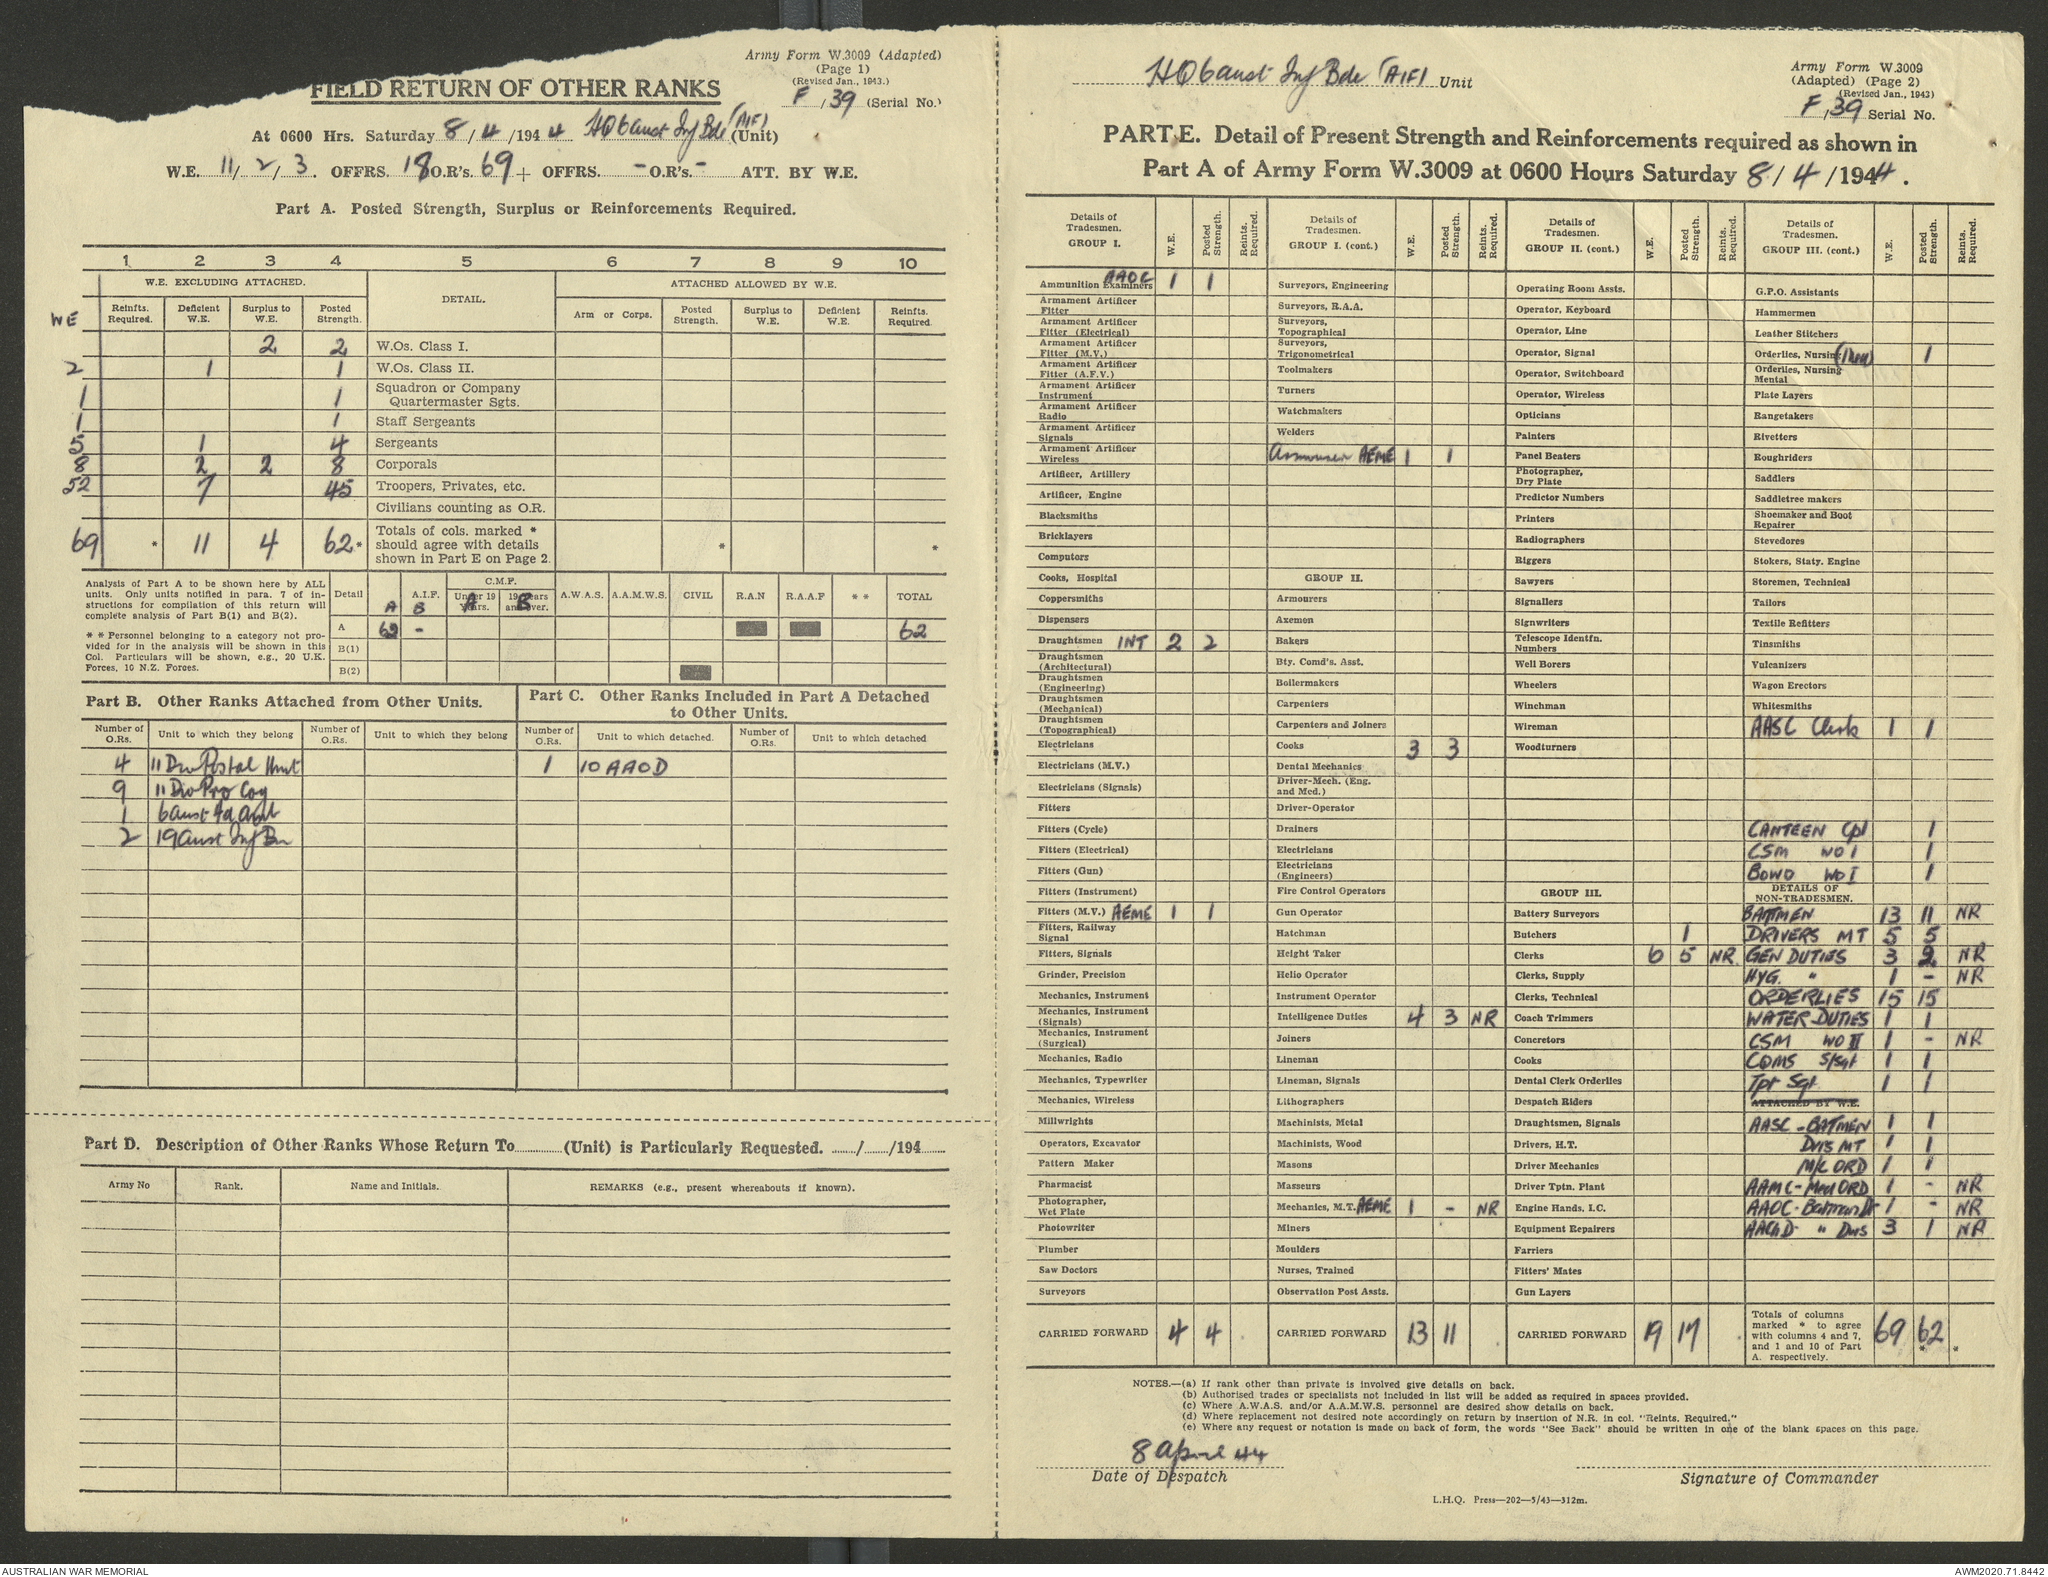 Army Form W.3009 (Adapted)
(Page 1)
(Revised Jan., 1943.)
FIELD RETURN OF OTHER RANKS
F / 39 (Serial No.)
At 0600 Hrs. Saturday 8 / 4 / 194 4 HQ 6 Aust Inf Bde (AIF) (Unit)
W.E. 11 / 2 / 3 . OFFRS. 18 O.R's. 69 + OFFRS. - O.R's. - ATT. BY W.E.
Part A. Posted Strength, Surplus or Reinforcements Required.
1 2 3 4 5 6 7 8 9 10
W.E. EXCLUDING ATTACHED. DETAIL. ATTACHED ALLOWED BY W.E.
WE Reinfts. Required. Deficient W.E. Surplus to W.E. Posted Strength. Arm or Corps. Posted Strength. Surplus to W.E. Deficient W.E. Reinfts. Required.
2 2 W.Os. Class I.
2 1 1 W.Os. Class II.
1 1 Squadron or Company Quartermaster Sgts.
1 1 Staff Sergeants
5 1 4 Sergeants
8 2 2 8 Corporals
52 7 45 Troopers, Privates, etc.
Civilians counting as O.R.
69 * 11 4 62 * Totals of cols. marked * should agree with details shown in Part E on Page 2. * *
Analysis of Part A to be shown here by ALL units. Only units notified in para. 7 of instructions for compilation of this return will complete analysis of Part B(1) and B(2).
* * Personnel belonging to a category not provided for in the analysis will be shown in this Col. Particulars will be shown, e.g., 20 U.K. Forces, 10 N.Z. Forces.
Detail A A.I.F. B C.M.F. Under 19 Years. A 19 Years and over. B A.W.A.S. A.A.M.W.S. CIVIL R.A.N R.A.A.F * * TOTAL
A 62 - 62
B(1)
B(2)
Part B. Other Ranks Attached from Other Units.
Part C. Other Ranks Included in Part A Detached to Other Units.
Number of O.Rs. Unit to which they belong Number of O.Rs. Unit to which they belong Number of O.Rs. Unit to which detached. Number of O.Rs. Unit to which detached
4 11 Div Postal Unit 1 10 AAOD
9 11 Div Pro Coy
1 6 Aust Fd Amb
2 19 Aust Inf Bn
Part D. Description of Other Ranks Whose Return To (Unit) is Particularly Requested. / /194
Army No Rank. Name and Initials. REMARKS (e.g., present whereabouts if known).
HQ 6 Aust Inf Bde (AIF) Unit
Army Form W.3009
(Adapted) (Page 2)
(Revised Jan., 1943)
F / 39 Serial No.
PART E. Detail of Present Strength and Reinforcements required as shown in
Part A of Army Form W.3009 at 0600 Hours Saturday 8 / 4 / 1944 .
Details of Tradesmen. GROUP I. W.E. Posted Strength. Reints. Required.
Ammunition Examiners AAOC 1 1
Armament Artificer Fitter
Armament Artificer Fitter (Electrical)
Armament Artificer Fitter (M.V.)
Armament Artificer Fitter (A.F.V.)
Armament Artificer Instrument
Armament Artificer Radio
Armament Artificer Signals
Armament Artificer Wireless
Artificer, Artillery
Artificer, Engine
Blacksmiths
Bricklayers
Computors
Cooks, Hospital
Coppersmiths
Dispensers
Draughtsmen INT 2 2
Draughtsmen (Architectural)
Draughtsmen (Engineering)
Draughtsmen (Mechanical)
Draughtsmen (Topographical)
Electricians
Electricians (M.V.)
Electricians (Signals)
Fitters
Fitters (Cycle)
Fitters (Electrical)
Fitters (Gun)
Fitters (Instrument)
Fitters (M.V.) AEME 1 1
Fitters, Railway Signal
Fitters, Signals
Grinder, Precision
Mechanics, Instrument
Mechanics, Instrument (Signals)
Mechanics, Instrument (Surgical)
Mechanics, Radio
Mechanics, Typewriter
Mechanics, Wireless
Millwrights
Operators, Excavator
Pattern Maker
Pharmacist
Photographer, Wet Plate
Photowriter
Plumber
Saw Doctors
Surveyors
CARRIED FORWARD 4 4
Details of Tradesmen. GROUP I. (cont.) W.E. Posted Strength. Reints. Required.
Surveyors, Engineering
Surveyors, R.A.A.
Surveyors, Topographical
Surveyors, Trigonometrical
Toolmakers
Turners
Watchmakers
Welders
Armourer AEME 1 1
GROUP II.
Armourers
Axemen
Bakers
Bty. Comd's. Asst.
Boilermakers
Carpenters
Carpenters and Joiners
Cooks 3 3
Dental Mechanics
Driver-Mech. (Eng. and Med.)
Driver-Operator
Drainers
Electricians
Electricians (Engineers)
Fire Control Operators
Gun Operator
Hatchman
Height Taker
Helio Operator
Instrument Operator
Intelligence Duties 4 3 NR
Joiners
Lineman
Lineman, Signals
Lithographers
Machinists, Metal
Machinists, Wood
Masons
Masseurs
Mechanics, M.T. AEME 1 - NR
Miners
Moulders
Nurses, Trained
Observation Post Assts.
CARRIED FORWARD 13 11
Details of Tradesmen. GROUP II. (cont.) W.E. Posted Strength. Reints. Required.
Operating Room Assts.
Operator, Keyboard
Operator, Line
Operator, Signal
Operator, Switchboard
Operator, Wireless
Opticians
Painters
Panel Beaters
Photographer, Dry Plate
Predictor Numbers
Printers
Radiographers
Riggers
Sawyers
Signallers
Signwriters
Telescope Identfn. Numbers
Well Borers
Wheelers
Winchman
Wireman
Woodturners
GROUP III.
Battery Surveyors
Butchers 1
Clerks 6 5 NR
Clerks, Supply
Clerks, Technical
Coach Trimmers
Concretors
Cooks
Dental Clerk Orderlies
Despatch Riders
Draughtsmen, Signals
Drivers, H.T.
Driver Mechanics
Driver Tptn. Plant
Engine Hands, I.C.
Equipment Repairers
Farriers
Fitters' Mates
Gun Layers
CARRIED FORWARD 19 17
Details of Tradesmen. GROUP III. (cont.) W.E. Posted Strength. Reints. Required.
G.P.O. Assistants
Hammermen
Leather Stitchers
Orderlies, Nursing (Men) 1
Orderlies, Nursing Mental
Plate Layers
Rangetakers
Rivetters
Roughriders
Saddlers
Saddletree makers
Shoemaker and Boot Repairer
Stevedores
Stokers, Staty. Engine
Storemen, Technical
Tailors
Textile Refitters
Tinsmiths
Vulcanizers
Wagon Erectors
Whitesmiths
AASC Clerk 1 1
CANTEEN Cpl 1
CSM WO I 1
BOWO WO I 1
DETAILS OF NON-TRADESMEN.
BATMEN 13 11 NR
DRIVERS MT 5 5
GEN DUTIES 3 2 NR
HYG. " 1 - NR
ORDERLIES 15 15
WATER DUTIES 1 1
CSM WO II 1 - NR
CQMS S/Sgt 1 1
Tpt Sgt 1 1
ATTACHED BY W.E.
AASC - BATMEN 1 1
Dvrs MT 1 1
M/C ORD 1 1
AAMC - Med ORD 1 - NR
AAOC - Batman 1 - NR
AACHD " Dvrs 3 1 NR
Totals of columns marked * to agree with columns 4 and 7, and 1 and 10 of Part A. respectively. 69 62 * *
NOTES.—(a) If rank other than private is involved give details on back.
(b) Authorised trades or specialists not included in list will be added as required in spaces provided.
(c) Where A.W.A.S. and/or A.A.M.W.S. personnel are desired show details on back.
(d) Where replacement not desired note accordingly on return by insertion of N.R. in col. "Reints. Required."
(e) Where any request or notation is made on back of form, the words "See Back" should be written in one of the blank spaces on this page.
8 April 44
Date of Despatch
Signature of Commander
L.H.Q. Press—202—5/43—312m.
AUSTRALIAN WAR MEMORIAL
AWM2020.71.8442